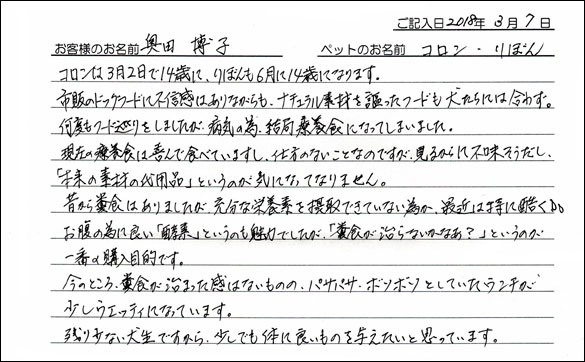 ご記入日2018年 3月 7日
お客様のお名前 奥田 博子 ペットのお名前 コロン・りぼん
コロンは3月2日で14歳に、りぼんも6月に14歳になります。
市販のドッグフードに不信感はありながらも、ナチュラル素材を謳ったフードも犬たちには合わず。
何度もフード巡りをしましたが、病気の為、結局療養食になってしまいました。
現在の療養食は喜んで食べていますし、仕方のないことなのですが、見るからに不味そうだし、
「本来の素材の代用品」というのが気になってなりません。
昔から糞食はありましたが、充分な栄養素を摂取できていない為か、最近は特に酷く
お腹の為に良い「酵素」というのも魅力でしたが、「糞食が治らないかなあ?」というのが
一番の購入目的です。
今のところ、糞食が治まった感はないものの、パサパサ・ボソボソとしていたウンチが
少しウエッティになっています。
残り少ない犬生ですから、少しでも体に良いものを与えたいと思っています。